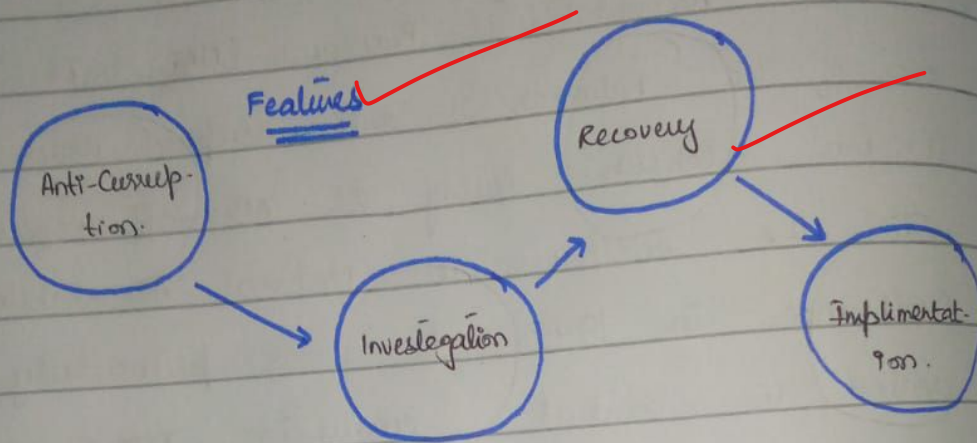 Features
Anti-Currup-
tion.
Investegation
Recovery
Implimentat-
ion.